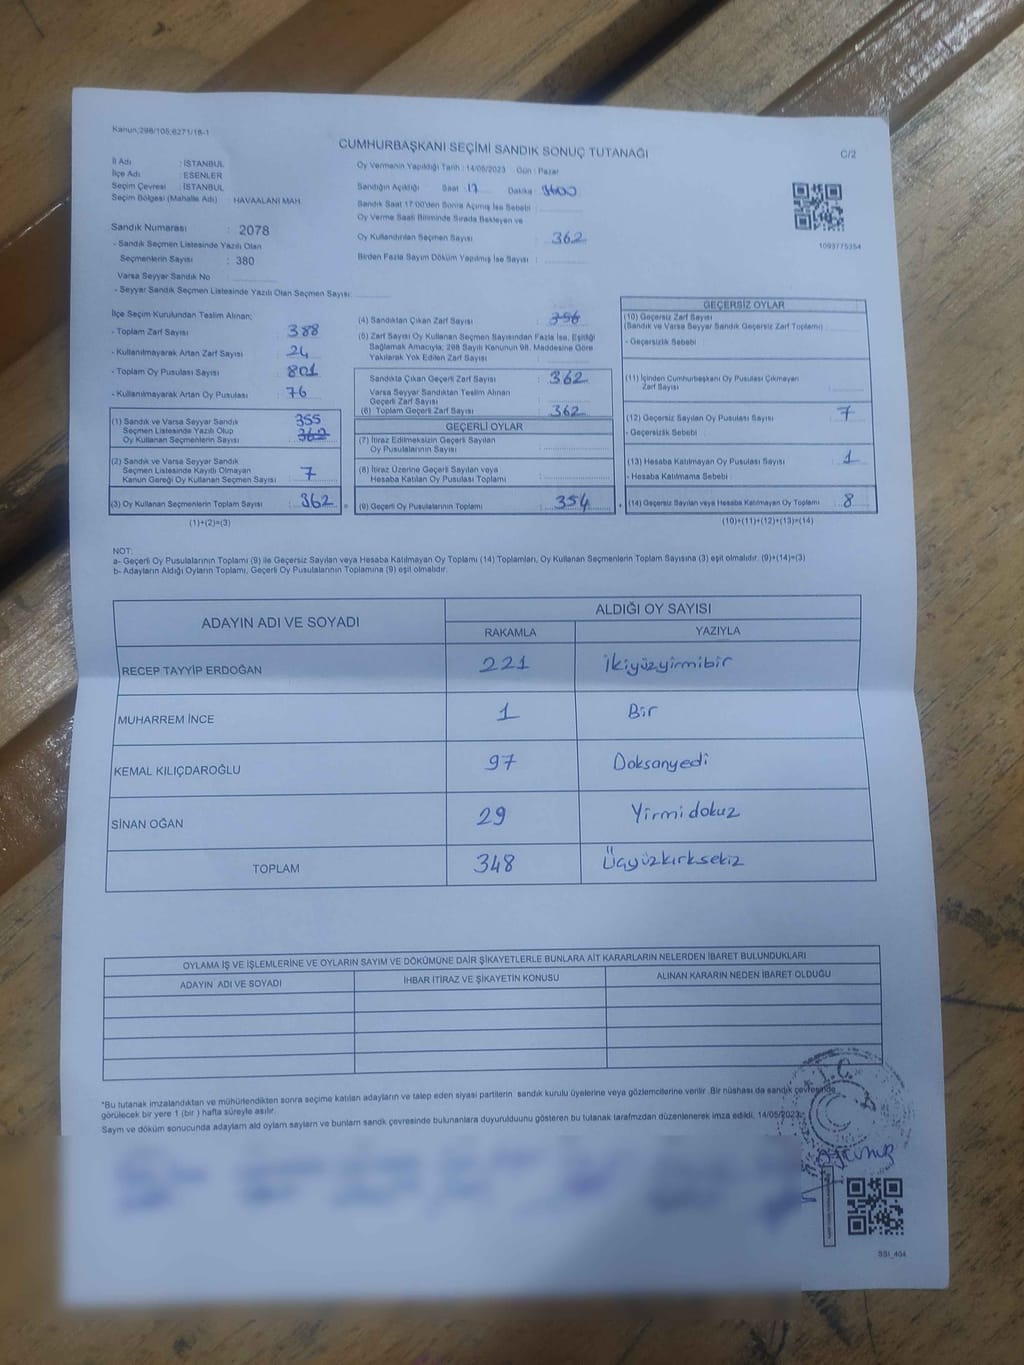 Kanun;298/105;6271/18-1
CUMHURBAŞKANI SEÇİMİ SANDIK SONUÇ TUTANAĞI
C/2
İl Adı : İSTANBUL
İlçe Adı : ESENLER
Seçim Çevresi : İSTANBUL
Seçim Bölgesi (Mahalle Adı) : HAVAALANI MAH.
Sandık Numarası : 2078
- Sandık Seçmen Listesinde Yazılı Olan
Seçmenlerin Sayısı : 380
Varsa Seyyar Sandık No
- Seyyar Sandık Seçmen Listesinde Yazılı Olan Seçmen Sayısı:
Oy Vermenin Yapıldığı Tarih : 14/05/2023 Gün : Pazar
Sandığın Açıldığı Saat 17 Dakika
Sandık Saat 17:00'den Sonra Açılmış İse Sebebi :
Oy Verme Saati Bitiminde Sırada Bekleyen ve
Oy Kullandırılan Seçmen Sayısı : 362
Birden Fazla Sayım Döküm Yapılmış İse Sayısı :
1093775354
İlçe Seçim Kurulundan Teslim Alınan;
- Toplam Zarf Sayısı : 388
- Kullanılmayarak Artan Zarf Sayısı : 24
- Toplam Oy Pusulası Sayısı : 801
- Kullanılmayarak Artan Oy Pusulası : 76
(1) Sandık ve Varsa Seyyar Sandık
Seçmen Listesinde Yazılı Olup
Oy Kullanan Seçmenlerin Sayısı : 355 362
(2) Sandık ve Varsa Seyyar Sandık
Seçmen Listesinde Kayıtlı Olmayan
Kanun Gereği Oy Kullanan Seçmen Sayısı : 7
(3) Oy Kullanan Seçmenlerin Toplam Sayısı : 362
(1)+(2)=(3)
(4) Sandıktan Çıkan Zarf Sayısı : 356
(5) Zarf Sayısı Oy Kullanan Seçmen Sayısından Fazla İse, Eşitliği
Sağlamak Amacıyla; 298 Sayılı Kanunun 98. Maddesine Göre
Yakılarak Yok Edilen Zarf Sayısı :
Sandıkta Çıkan Geçerli Zarf Sayısı : 362
Varsa Seyyar Sandıktan Teslim Alınan
Geçerli Zarf Sayısı :
(6) Toplam Geçerli Zarf Sayısı : 362
GEÇERLİ OYLAR
(7) İtiraz Edilmeksizin Geçerli Sayılan
Oy Pusulalarının Sayısı :
(8) İtiraz Üzerine Geçerli Sayılan veya
Hesaba Katılan Oy Pusulası Toplamı :
= (9) Geçerli Oy Pusulalarının Toplamı : 354
GEÇERSİZ OYLAR
(10) Geçersiz Zarf Sayısı
(Sandık ve Varsa Seyyar Sandık Geçersiz Zarf Toplamı) :
- Geçersizlik Sebebi :
(11) İçinden Cumhurbaşkanı Oy Pusulası Çıkmayan
Zarf Sayısı :
(12) Geçersiz Sayılan Oy Pusulası Sayısı : 7
- Geçersizlik Sebebi :
(13) Hesaba Katılmayan Oy Pusulası Sayısı : 1
- Hesaba Katılmama Sebebi :
+ (14) Geçersiz Sayılan veya Hesaba Katılmayan Oy Toplamı : 8
(10)+(11)+(12)+(13)=(14)
NOT:
a- Geçerli Oy Pusulalarının Toplamı (9) ile Geçersiz Sayılan veya Hesaba Katılmayan Oy Toplamı (14) Toplamları, Oy Kullanan Seçmenlerin Toplam Sayısına (3) eşit olmalıdır. (9)+(14)=(3)
b- Adayların Aldığı Oyların Toplamı, Geçerli Oy Pusulalarının Toplamına (9) eşit olmalıdır.
ADAYIN ADI VE SOYADI
ALDIĞI OY SAYISI
RAKAMLA YAZIYLA
RECEP TAYYİP ERDOĞAN 221 İkiyüzyirmibir
MUHARREM İNCE 1 Bir
KEMAL KILIÇDAROĞLU 97 Doksanyedi
SİNAN OĞAN 29 Yirmidokuz
TOPLAM 348 Üçyüzkırksekiz
OYLAMA İŞ VE İŞLEMLERİNE VE OYLARIN SAYIM VE DÖKÜMÜNE DAİR ŞİKAYETLERLE BUNLARA AİT KARARLARIN NELERDEN İBARET BULUNDUKLARI
ADAYIN ADI VE SOYADI İHBAR İTİRAZ VE ŞİKAYETİN KONUSU ALINAN KARARIN NEDEN İBARET OLDUĞU
*Bu tutanak imzalandıktan ve mühürlendikten sonra seçime katılan adayların ve talep eden siyasi partilerin sandık kurulu üyelerine veya gözlemcilerine verilir. Bir nüshası da sandık çevresinde
görülecek bir yere 1 (bir) hafta süreyle asılır.
Sayım ve döküm sonucunda adayların ald oyların sayların ve bunların sandk çevresinde bulunanlara duyurulduunu gösteren bu tutanak tarafmzdan düzenlenerek imza edildi. 14/05/2023
T.C.
SSI_404